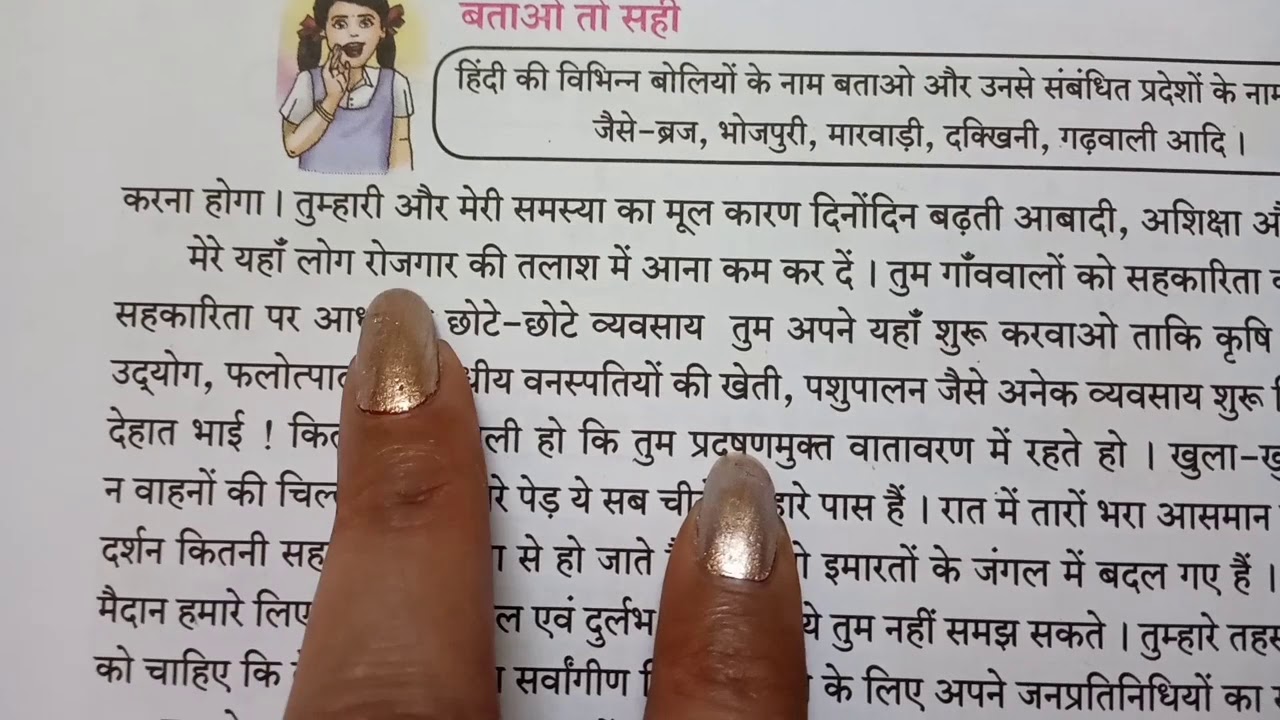 बताओ तो सही
हिंदी की विभिन्न बोलियों के नाम बताओ और उनसे संबंधित प्रदेशों के नाम
जैसे-ब्रज, भोजपुरी, मारवाड़ी, दक्खिनी, गढ़वाली आदि ।
करना होगा । तुम्हारी और मेरी समस्या का मूल कारण दिनोंदिन बढ़ती आबादी, अशिक्षा
मेरे यहाँ लोग रोजगार की तलाश में आना कम कर दें । तुम गाँववालों को सहकारिता
सहकारिता पर छोटे-छोटे व्यवसाय तुम अपने यहाँ शुरू करवाओ ताकि कृषि
उद्‌योग, वनस्पतियों की खेती, पशुपालन जैसे अनेक व्यवसाय शुरू
देहात भाई ! हो कि तुम प्रदूषणमुक्त वातावरण में रहते हो ।
न वाहनों की पेड़ ये सब पास हैं । रात में तारों भरा आसमान
दर्शन कितनी से हो जाते इमारतों के जंगल में बदल गए हैं ।
मैदान हमारे एवं दुर्लभ ये तुम नहीं समझ सकते । तुम्हारे
को चाहिए कि सर्वांगीण के लिए अपने जनप्रतिनिधियों का